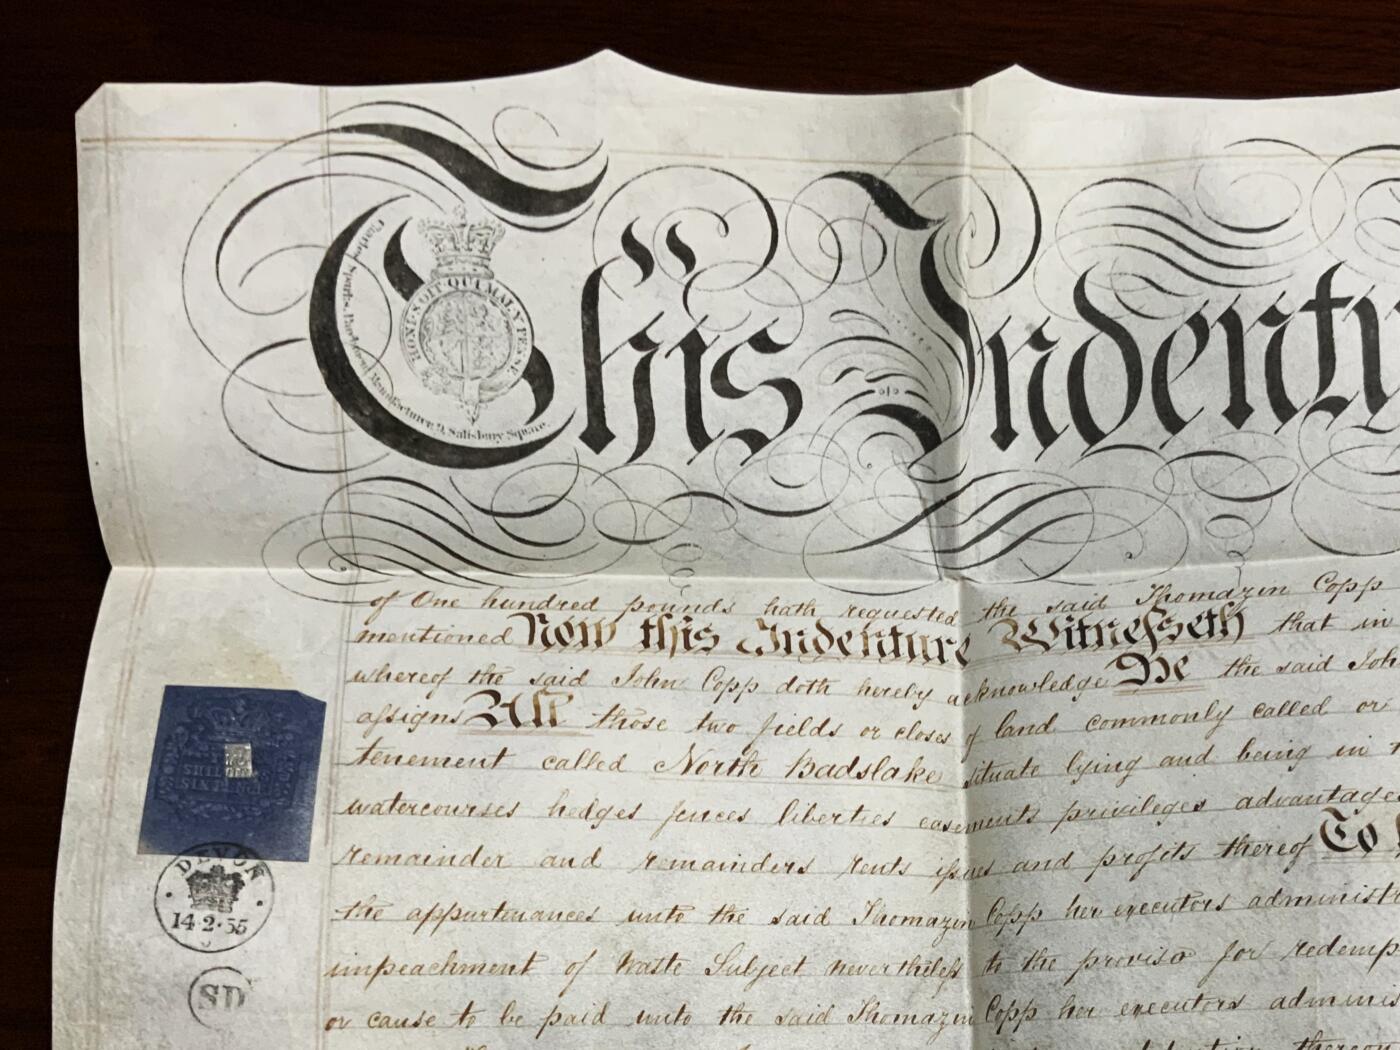 This Indentu
HONI·SOIT·QUI·MAL·Y·PENSE
Charles Sparts, Parchment Manufacturer, 9, Salisbury Square.
of One hundred pounds hath requested the said Thomazin Copp
mentioned Now this Indenture Witnesseth that in
whereof the said John Copp doth hereby acknowledge He the said Joh
assigns All those two fields or closes of land commonly called or
tenement called North Badslake situate lying and being in
watercourses hedges fences liberties easements privileges advantages
remainder and remainders rents issues and profits thereof To
the appurtenances unto the said Thomazin Copp her executors administr
impeachment of Waste Subject nevertheless to the proviso for redemp
or cause to be paid unto the said Thomazin Copp her executors adminis
thereon
DEVON
14·2·55
SD